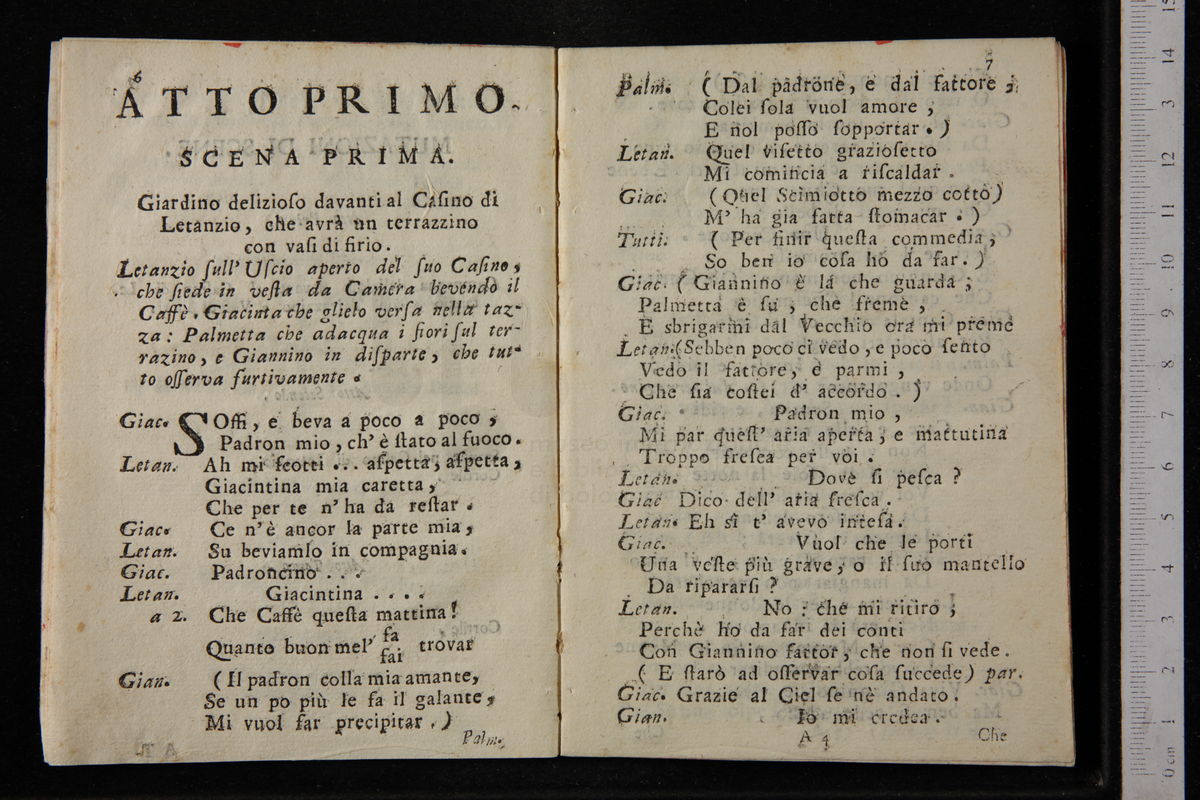 6
ATTO PRIMO.
SCENA PRIMA.
Giardino delizioſo davanti al Caſino di
Letanzio, che avrà un terrazzino
con vaſi di firio.
Letanzio ſull' Uſcio aperto del ſuo Caſino,
che ſiede in veſta da Camera bevendo il
Caffè. Giacinta che glielo verſa nella taz-
za: Palmetta che adacqua i fiori ſul ter-
razino, e Giannino in diſparte, che tut-
to oſſerva furtivamente.
Giac. SOffi, e beva a poco a poco,
Padron mio, ch' è ſtato al fuoco.
Letan. Ah mi ſcotti ... aſpetta, aſpetta,
Giacintina mia caretta,
Che per te n' ha da reſtar.
Giac. Ce n' è ancor la parte mia,
Letan. Su beviamlo in compagnia.
Giac. Padroncino . . .
Letan. Giacintina . . . .
a 2. Che Caffè queſta mattina!
Quanto buon mel' fa trovar
fai
Gian. (Il padron colla mia amante,
Se un po più le fa il galante,
Mi vuol far precipitar.)
Palm.
7
Palm. (Dal padrone, e dal fattore,
Colei ſola vuol amore,
E nol poſſo ſopportar.)
Letan. Quel viſetto grazioſetto
Mi comincia a riſcaldar.
Giac. (Quel Scimiotto mezzo cotto)
M' ha gia fatta ſtomacar.)
Tutti. (Per finir queſta commedia,
So ben io coſa ho da far.)
Giac. (Giannino è là che guarda;
Palmetta è ſu, che freme,
E sbrigarmi dal Vecchio ora mi preme
Letan. (Sebben poco ci vedo, e poco ſento
Vedo il fattore, e parmi,
Che ſia coſtei d' accordo.)
Giac. Padron mio,
Mi par queſt' aria aperta, e mattutina
Troppo freſca per voi.
Letan. Dovè ſi peſca?
Giac Dico dell' aria freſca.
Letan. Eh sì t' avevo inteſa.
Giac. Vuol che le porti
Una veſte più grave, o il ſuo mantello
Da ripararſi?
Letan. No: che mi ritiro;
Perchè ho da far dei conti
Con Giannino fattor, che non ſi vede.
(E ſtarò ad oſſervar coſa ſuccede) par.
Giac. Grazie al Ciel ſe nè andato.
Gian. Io mi credea.
A 4 Che